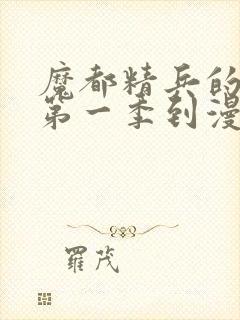 魔都精兵的
第一季到漫
羅茂